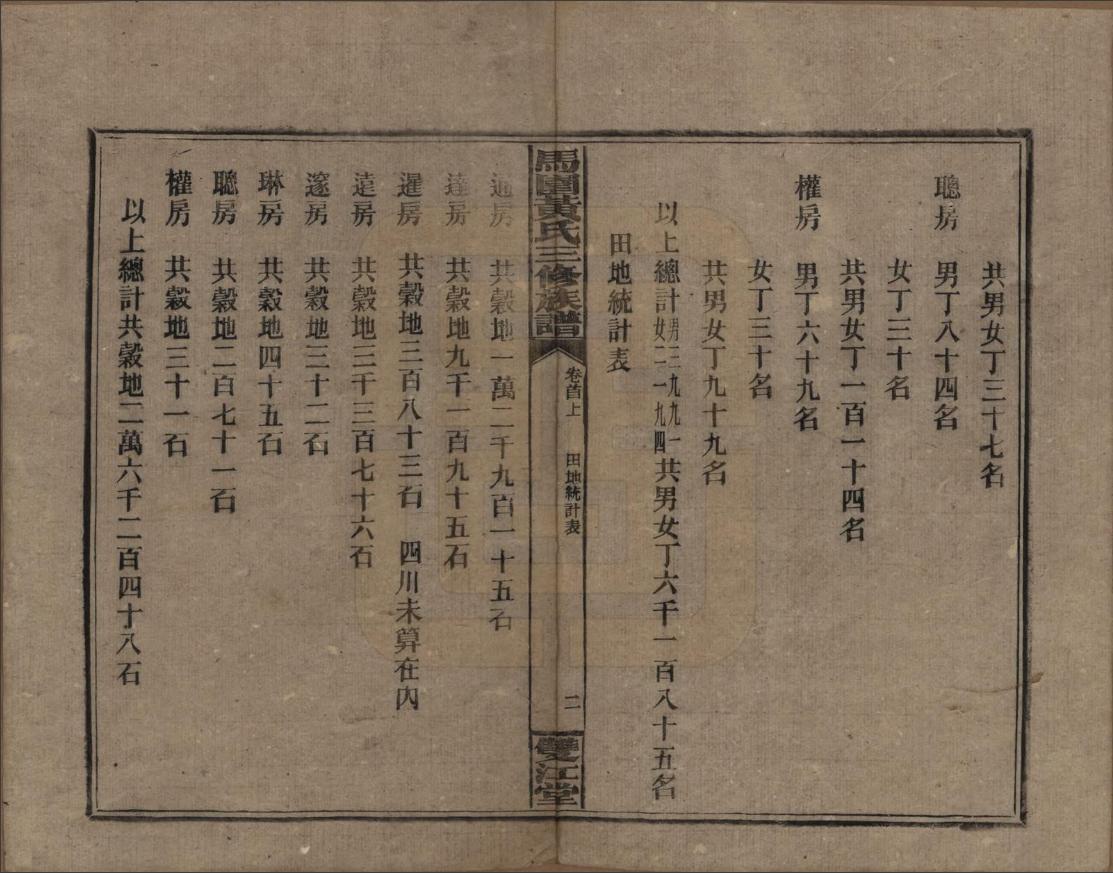 共男女丁三十七名
聰房　男丁八十四名
女丁三十名
共男女丁一百一十四名
權房　男丁六十九名
女丁三十名
共男女丁九十九名
以上總計男三九九一女二一九四共男女丁六千一百八十五名
田地統計表
馬園黃氏三修族譜　卷首上　田地統計表　二　雙江堂
通房　共穀地一萬二千九百一十五石
達房　共穀地九千一百九十五石
暹房　共穀地三百八十三石　四川未算在內
遠房　共穀地三千三百七十六石
邃房　共穀地三十二石
琳房　共穀地四十五石
聰房　共穀地二百七十一石
權房　共穀地三十一石
以上總計共穀地二萬六千二百四十八石